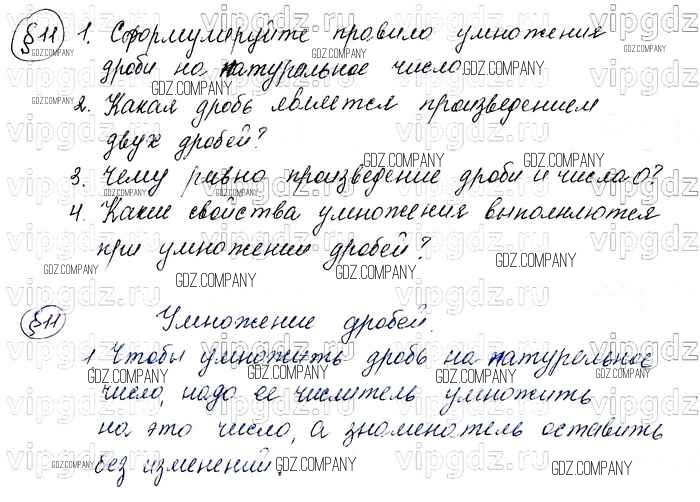 §11 1. Сформулируйте правило умножения
дроби на натуральное число.
2. Какая дробь является произведением
двух дробей?
3. Чему равно произведение дроби и числа 0?
4. Какие свойства умножения выполняются
при умножении дробей?
§11 Умножение дробей.
1 Чтобы умножить дробь на натуральное
число, надо ее числитель умножить
на это число, а знаменатель оставить
без изменений.
vipgdz.ru
GDZ.COMPANY